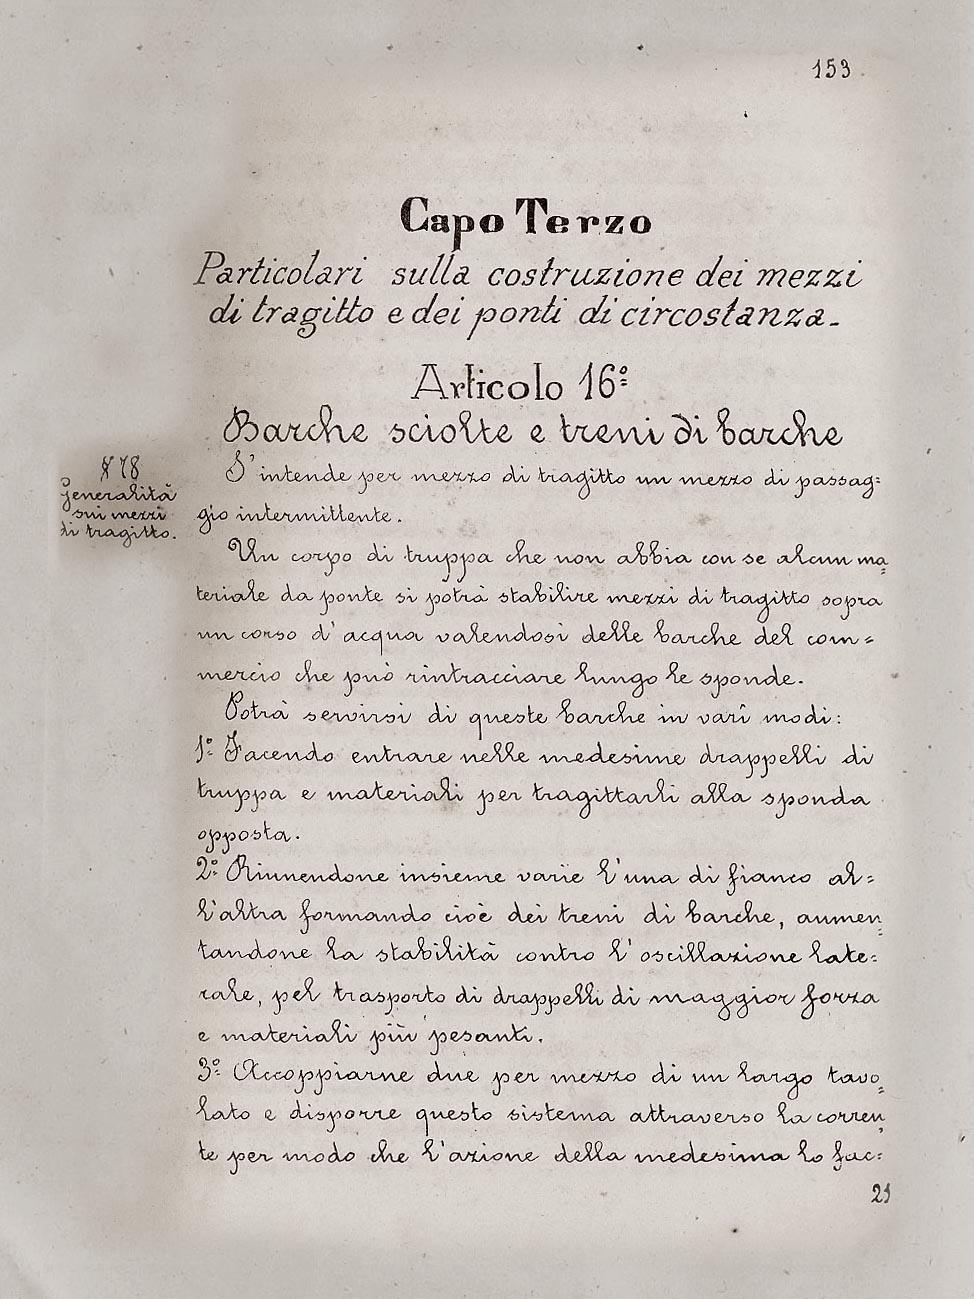 153
Capo Terzo
Particolari sulla costruzione dei mezzi
di tragitto e dei ponti di circostanza.
Articolo 16º
Barche sciolte e treni di barche
§ 78
Generalità
sui mezzi
di tragitto.
S'intende per mezzo di tragitto un mezzo di passag=
gio intermittente.
Un corpo di truppa che non abbia con se alcun ma=
teriale da ponte si potrà stabilire mezzi di tragitto sopra
un corso d'acqua valendosi delle barche del com=
mercio che può rintracciare lungo le sponde.
Potrà servirsi di queste barche in varî modi:
1º Facendo entrare nelle medesime drappelli di
truppa e materiali per tragittarli alla sponda
opposta.
2º Riunendone insieme varie l'una di fianco al=
l'altra formando cioè dei treni di barche, aumen=
tandone la stabilità contro l'oscillazione late=
rale, pel trasporto di drappelli di maggior forza
e materiali più pesanti.
3º Accoppiarne due per mezzo di un largo tavo=
lato e disporre questo sistema attraverso la corren=
te per modo che l'azione della medesima lo fac=
21